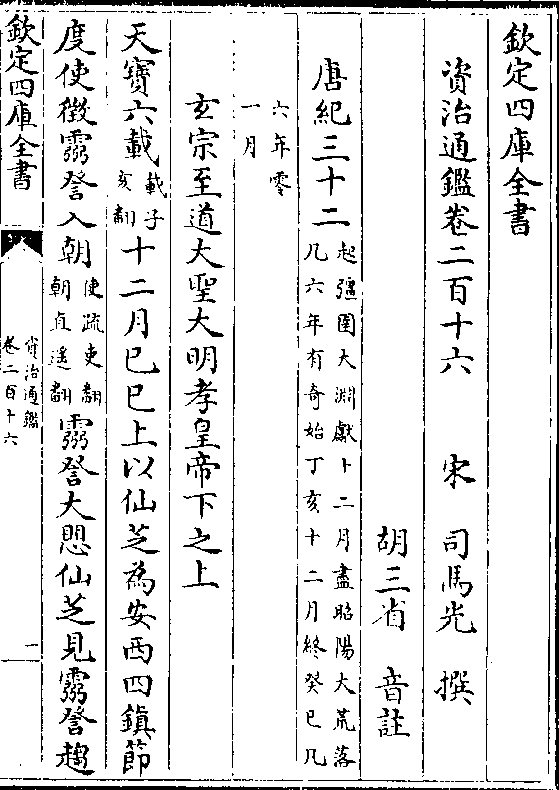 欽定四庫全書
資治通鑑卷二百十六
宋 司馬光 撰
胡三省 音註
唐紀三十二起彊圉大淵獻十二月盡昭陽大荒落凡六年有奇始丁亥十二月終癸巳凡
六年零一月
玄宗至道大聖大明孝皇帝下之上
天寶六載載子亥翻十二月己巳上以仙芝為安西四鎮節
度使徵靈詧入朝使疏吏翻朝直遥翻靈詧大懼仙芝見靈詧趨
欽定四庫全書
資治通鑑
卷二百十六